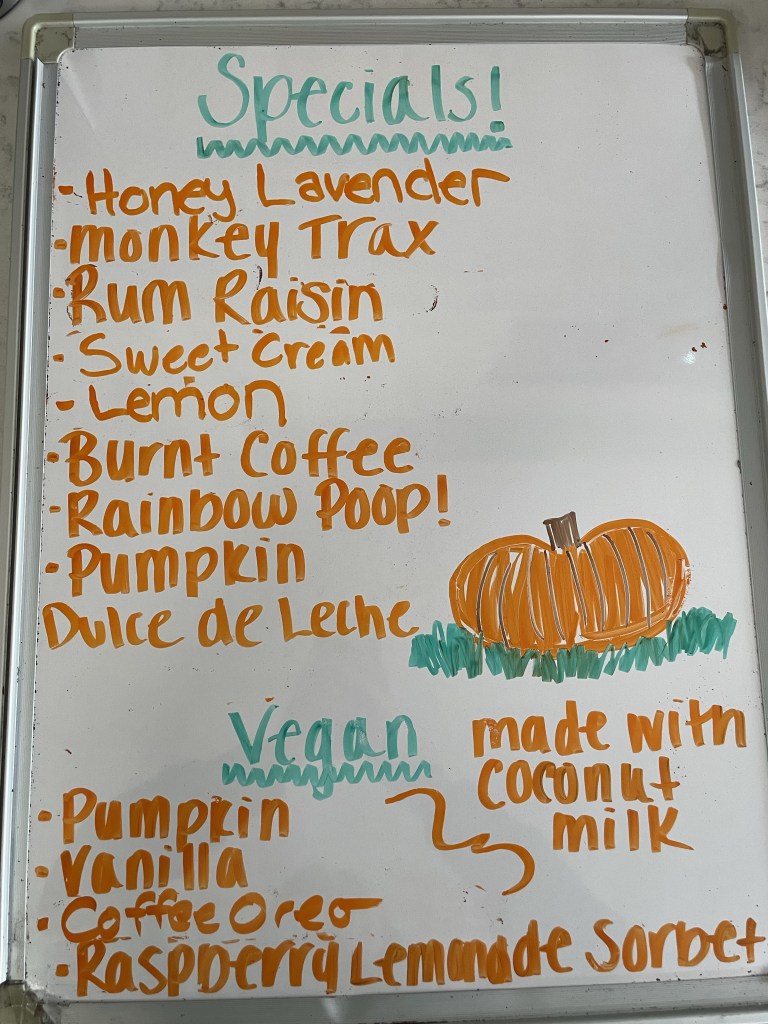 Specials!
• Honey Lavender
• monkey Trax
• Rum Raisin
• Sweet Cream
• Lemon
• Burnt Coffee
• Rainbow Poop!
• Pumpkin
Dulce de Leche
Vegan
made with
coconut
milk
• Pumpkin
• Vanilla
• Coffee Oreo
• Raspberry Lemonade Sorbet